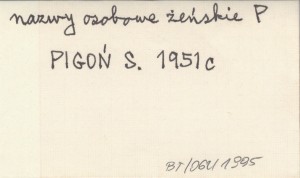 nazwy osobowe żeńskie P
PIGOŃ S. 1951c
BT/061/1995